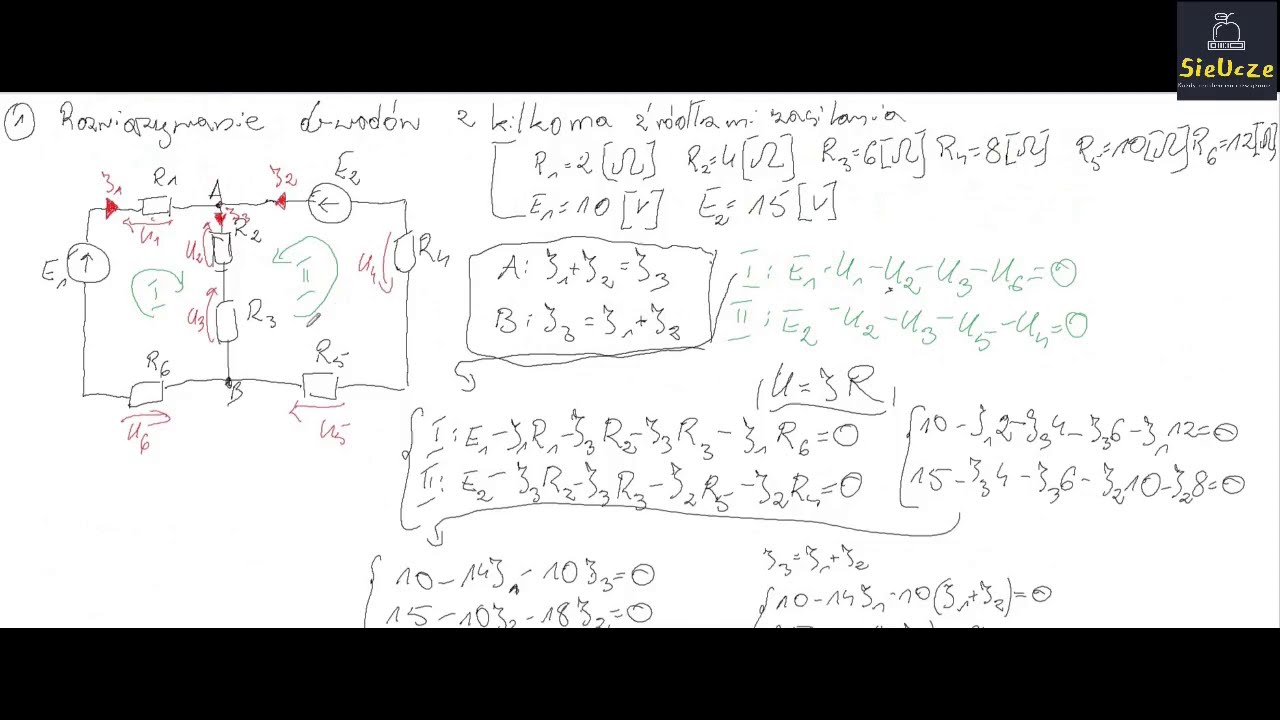 SieUcze
① Rozwiązywanie obwodów z kilkoma źródłami zasilania
R₁=2[Ω] R₂=4[Ω] R₃=6[Ω] R₄=8[Ω] R₅=10[Ω] R₆=12[Ω]
E₁=10[V] E₂=15[V]
I₁ R₁ A I₂ E₂
U₁ I₃ R₂ U₂ U₄ R₄
E₁ I II
U₃ R₃
R₆ B R₅
U₆ U₅
A: I₁+I₂=I₃
B: I₃=I₁+I₂
I: E₁-U₁-U₂-U₃-U₆=0
II: E₂-U₂-U₃-U₅-U₄=0
U=IR
I: E₁-I₁R₁-I₃R₂-I₃R₃-I₁R₆=0
II: E₂-I₃R₂-I₃R₃-I₂R₅-I₂R₄=0
10-I₁2-I₃4-I₃6-I₁12=0
15-I₃4-I₃6-I₂10-I₂8=0
10-14I₁-10I₃=0
15-10I₃-18I₂=0
I₃=I₁+I₂
10-14I₁-10(I₁+I₂)=0